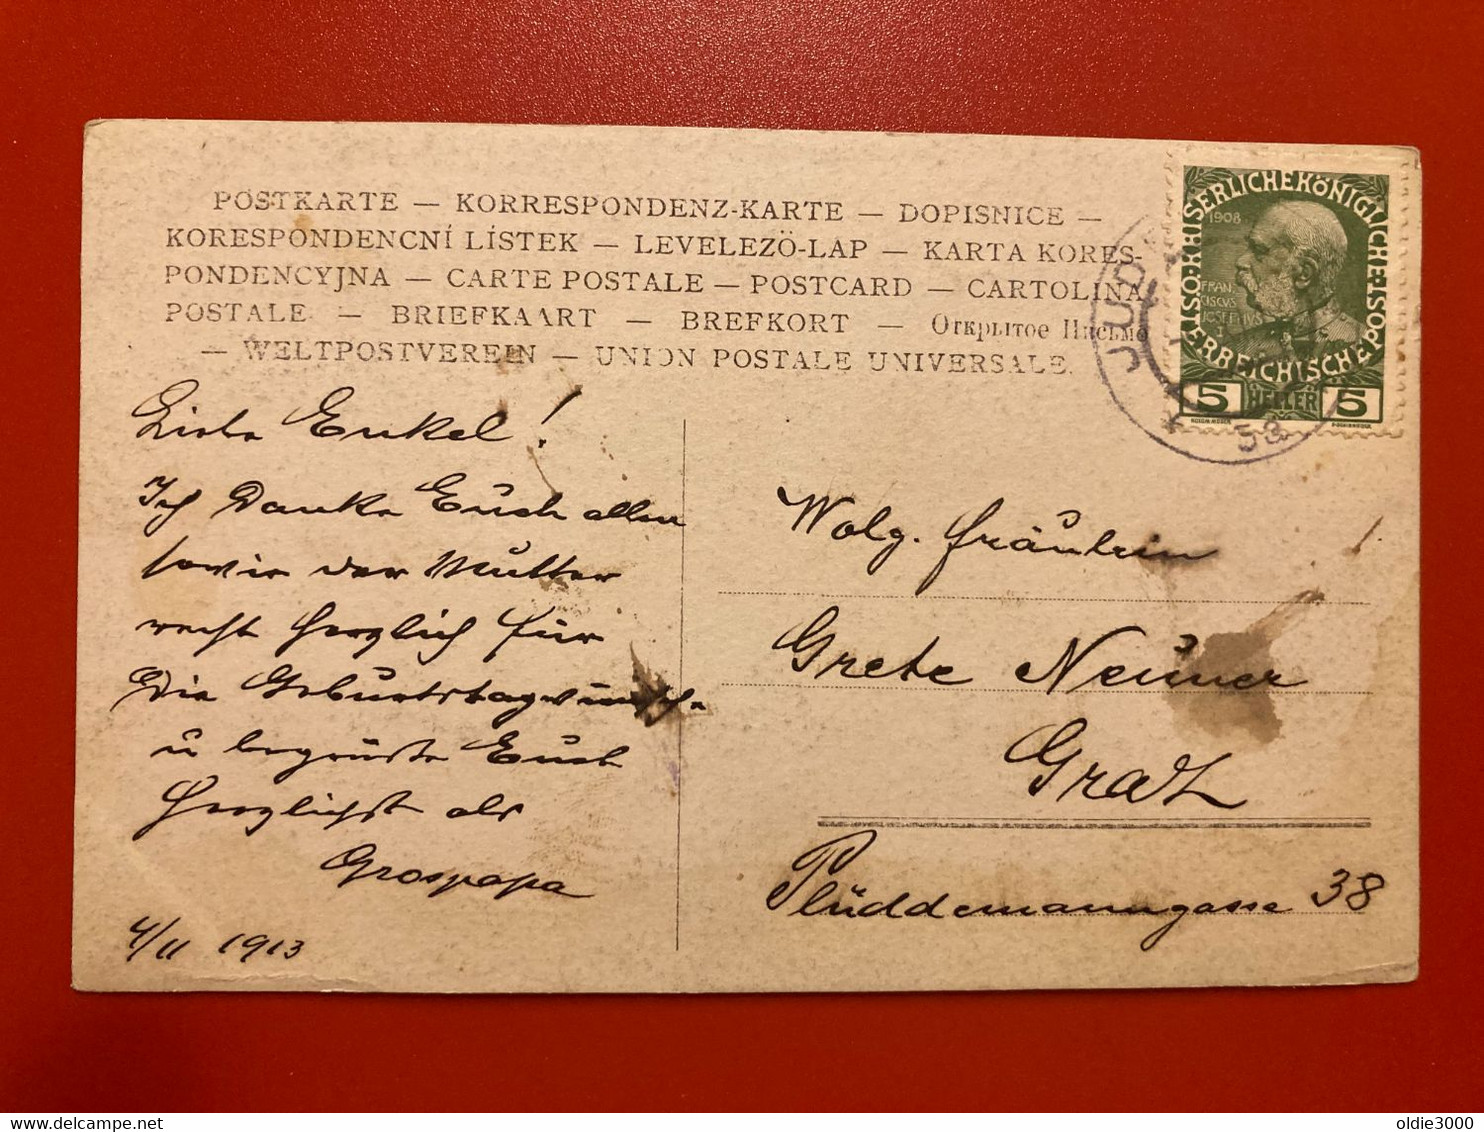 POSTKARTE — KORRESPONDENZ-KARTE — DOPISNICE —
KORESPONDENCNÍ LÍSTEK — LEVELEZÖ-LAP — KARTA KORES-
PONDENCYJNA — CARTE POSTALE — POSTCARD — CARTOLINA
POSTALE — BRIEFKAART — BREFKORT — Открытое Письмо
— WELTPOSTVEREIN — UNION POSTALE UNIVERSALE.
KAISERLICHEKÖNIGLICHE ÖSTERREICHISCHE POST
1908
FRAN
CISCUS
JOSEPHUS
I
5 HELLER 5
JUD
5a
Liebe Enkel!
Ich Danke Euch allen
sowie der Mutter
recht herzlich für
Die Geburtstagwünsche
u begrüße Euch
herzlichst als
Grospapa
4/11 1913
Wolg. Fräulein
Grete Neuner
Graz
Plüddemanngasse 38
oldie3000